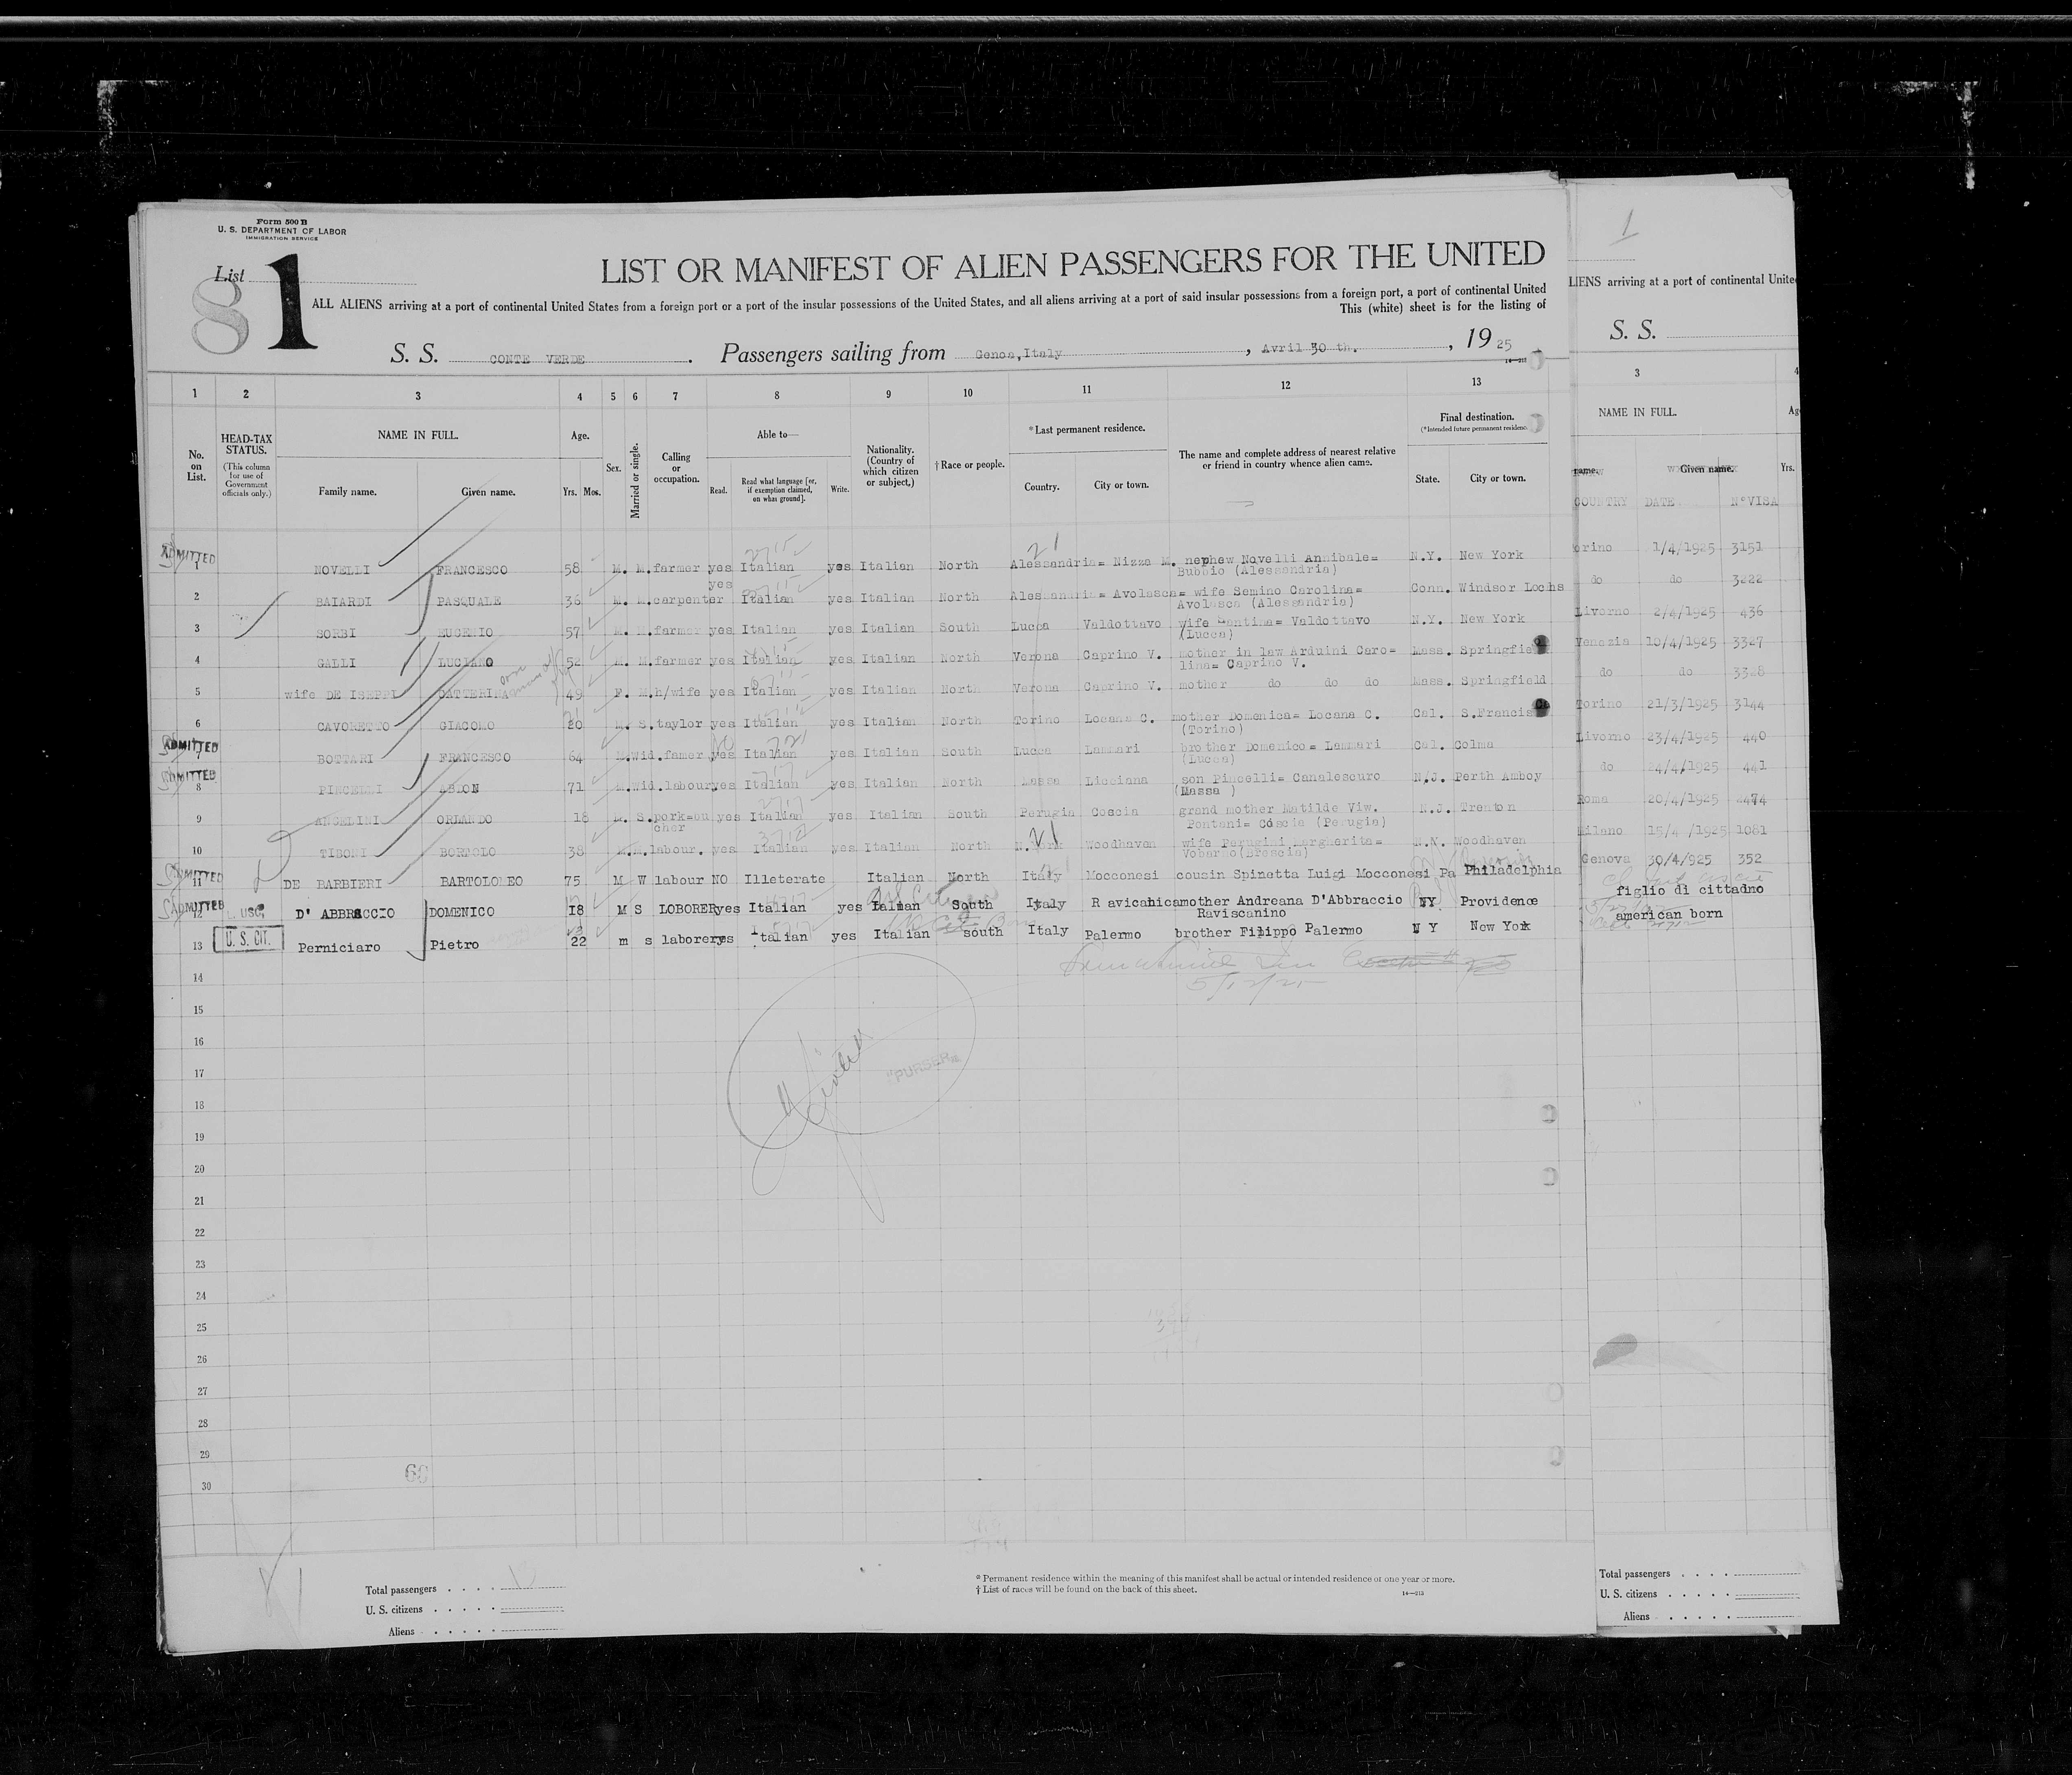 Form 500 B
U. S. DEPARTMENT OF LABOR
IMMIGRATION SERVICE
List 81
LIST OR MANIFEST OF ALIEN PASSENGERS FOR THE UNITED
ALL ALIENS arriving at a port of continental United States from a foreign port or a port of the insular possessions of the United States, and all aliens arriving at a port of said insular possessions from a foreign port, a port of continental United
This (white) sheet is for the listing of
S. S. CONTE VERDE. Passengers sailing from Genoa,Italy, Avril 30 th., 1925
1 2 3 4 5 6 7 8 9 10 11 12 13
No. on List.
HEAD-TAX STATUS.
(This column for use of Government officials only.)
NAME IN FULL.
Family name. Given name.
Age.
Yrs. Mos.
Sex.
Married or single.
Calling or occupation.
Able to—
Read. Read what language [or, if exemption claimed, on what ground]. Write.
Nationality. (Country of which citizen or subject.)
† Race or people.
*Last permanent residence.
Country. City or town.
The name and complete address of nearest relative or friend in country whence alien came.
Final destination.
(*Intended future permanent residence.)
State. City or town.
ADMITTED
1 NOVELLI FRANCESCO 58 M. M. farmer yes Italian yes Italian North Alessandria= Nizza M. nephew Novelli Annibale= N.Y. New York
Bubbio (Alessandria)
yes
2 BAIARDI PASQUALE 36 M. M. carpenter Italian yes Italian North Alessandria= Avolasca= wife Semino Carolina= Conn. Windsor Lochs
Avolasca (Alessandria)
3 SORBI EUGENIO 57 M. M. farmer yes Italian yes Italian South Lucca Valdottavo wife Santina= Valdottavo N.Y. New York
(Lucca)
4 GALLI LUCIANO 52 M. M. farmer yes Italian yes Italian North Verona Caprino V. mother in law Arduini Caro= Mass. Springfield
lina= Caprino V.
5 wife DE ISEPPI CATTERINA 49 F. M. h/wife yes Italian yes Italian North Verona Caprino V. mother do do do Mass. Springfield
6 CAVORETTO GIACOMO 20 M. S. taylor yes Italian yes Italian North Torino Locana C. mother Domenica= Locana C. Cal. S.Francisco
(Torino)
ADMITTED
7 BOTTARI FRANCESCO 64 M. wid. famer yes Italian yes Italian South Lucca Lammari brother Domenico= Lammari Cal. Colma
(Lucca)
ADMITTED
8 PINCELLI ABLON 71 M. wid. labour yes Italian yes Italian North Massa Licciana son Pincelli= Canalescuro N.J. Perth Amboy
(Massa )
9 ANGELINI ORLANDO 18 M. S. pork=bu yes Italian yes Italian South Perugia Coscia grand mother Matilde Viw. N.J. Trenton
cher Pontani= Coscia (Perugia)
10 TIBONI BORTOLO 38 M. M. labour. yes Italian yes Italian North N.York Woodhaven wife Perugini Margherita= N.N. Woodhaven
Vobarno(Brescia)
ADMITTED
11 DE BARBIERI BARTOLOMEO 75 M W labour NO Illeterate Italian North Italy Mocconesi cousin Spinetta Luigi Mocconesi Pa Philadelphia
ADMITTED
12 USC D' ABBRACCIO DOMENICO 18 M S LOBORER yes Italian yes Italian South Italy R avicahica mother Andreana D'Abbraccio NY Providence
Raviscanino
U. S. CIT.
13 Perniciaro Pietro 22 m s laborer yes Italian yes Italian south Italy Palermo brother Filippo Palermo N Y New York
5/12/25
14
15
16
17
"PURSER"
18
19
20
21
22
23
24
25
26
27
28
29
30
Total passengers . . . .
U. S. citizens . . . . .
Aliens . . . . .
* Permanent residence within the meaning of this manifest shall be actual or intended residence of one year or more.
† List of races will be found on the back of this sheet.
1
LIENS arriving at a port of continental Unite
S. S.
3 4
NAME IN FULL.
name. Given name. Yrs.
COUNTRY DATE N°VISA
orino 1/4/1925 3151
do do 3222
Livorno 2/4/1925 436
Venezia 10/4/1925 3327
do do 3328
Torino 21/3/1925 3144
Livorno 23/4/1925 440
do 24/4/1925 441
Roma 20/4/1925 2474
Milano 15/4 /1925 1081
Genova 30/4/925 352
figlio di cittadno
american born
Total passengers . . . .
U. S. citizens . . . . .
Aliens . . . . .